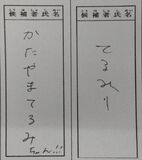 候補者氏名
かたやまてるみ
ちゃん!!!
候補者氏名
てるみり